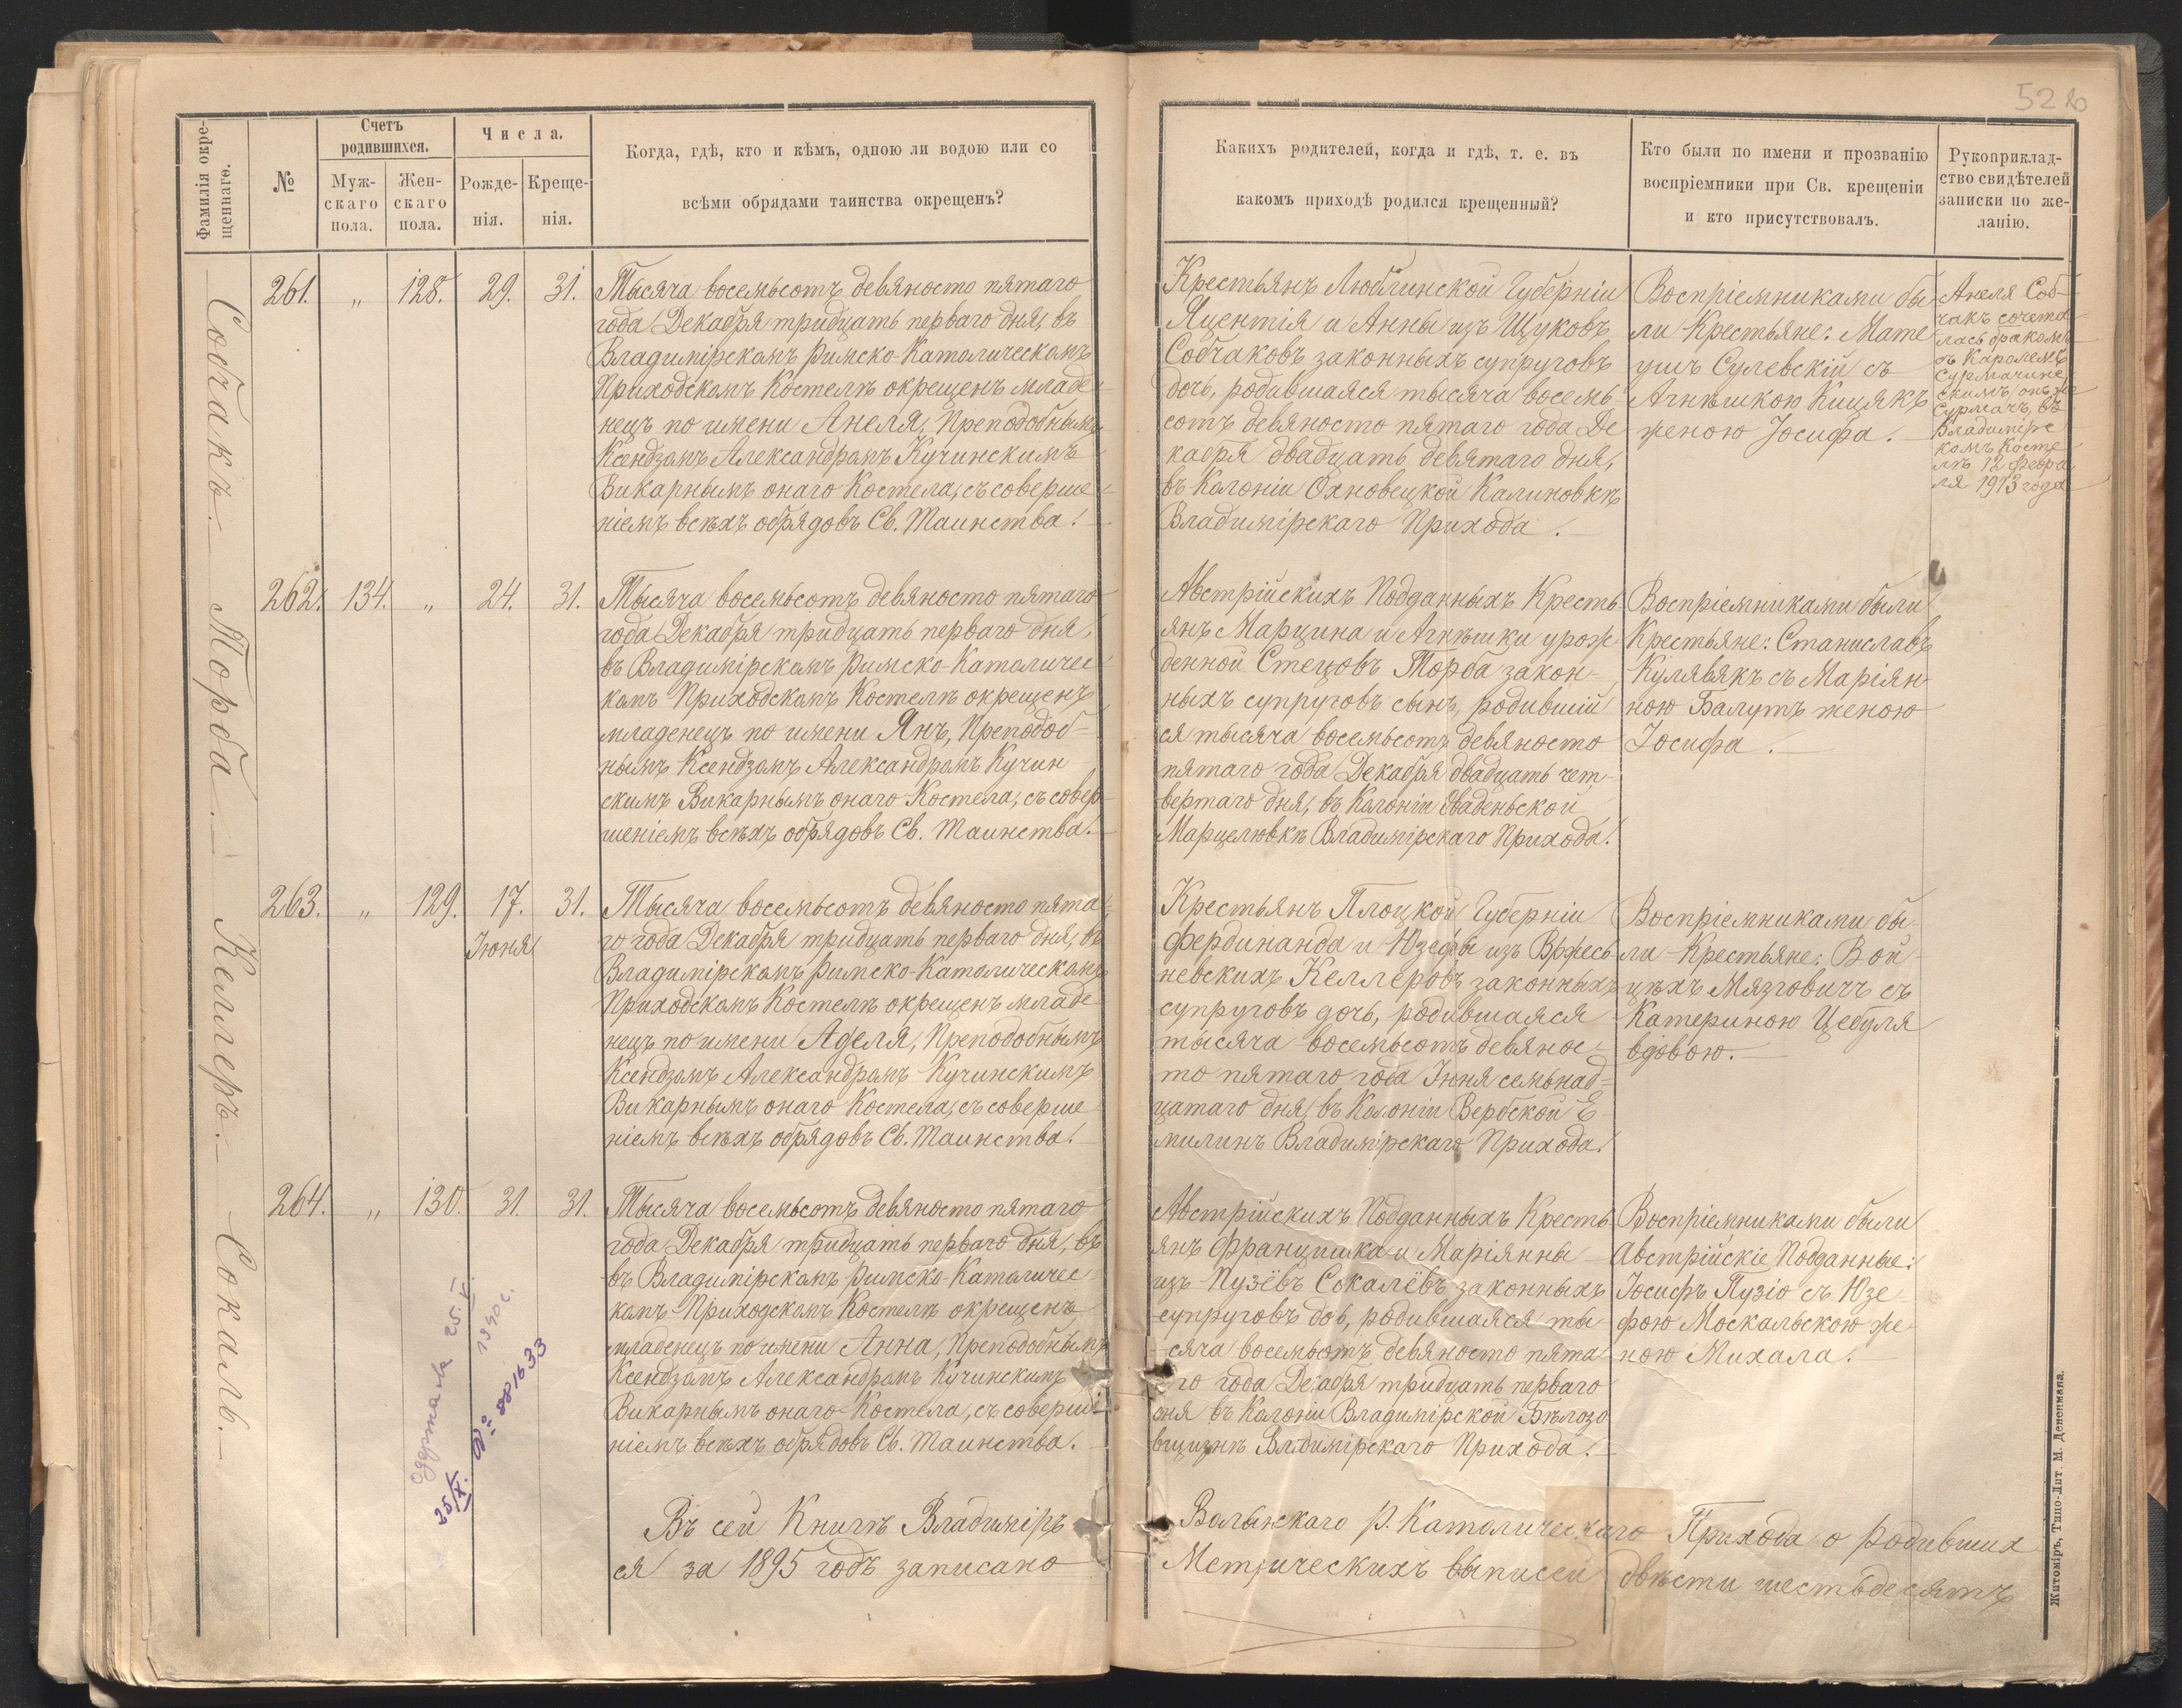 52
Фамилія окре-
щеннаго.
№
Счетъ
родившихся.
Муж-
скаго
пола.
Жен-
скаго
пола.
Числа.
Рожде-
нія.
Креще-
нія.
Когда, гдѣ, кто и кѣмъ, одною ли водою или со
всѣми обрядами таинства окрещенъ?
Какихъ родителей, когда и гдѣ, т. е. въ
какомъ приходѣ родился крещенный?
Кто были по имени и прозванію
воспріемники при Св. крещеніи
и кто присутствовалъ.
Рукоприклад-
ство свидѣтелей
записки по же-
ланію.
Собчакъ.
261. „ 128. 29. 31.
Тысяча восемьсотъ девяносто пятаго
года Декабря тридцать перваго дня, въ
Владимірскомъ Римско-Католическомъ
Приходскомъ Костелѣ окрещенъ младе-
нецъ по имени Анеля, Преподобнымъ
Ксендзомъ Александромъ Кучинскимъ
Викарнымъ онаго Костела, съ соверше-
ніемъ всѣхъ обрядовъ Св. Таинства.
Крестьянъ Люблинской Губерніи
Яцентія и Анны изъ Щуковъ
Собчаковъ законныхъ супруговъ
дочь, родившаяся тысяча восемь-
сотъ девяносто пятаго года Де
кабря двадцать девятаго дня,
въ Колоніи Охновецкой Калиновкѣ
Владимірскаго Прихода.
Воспріемниками бы-
ли Крестьяне: Мате
ушъ Сулевскій съ
Агнѣшкою Кицякъ
женою Іосифа.
Анеля Соб-
чакъ сочета
лась бракомъ
съ Каролемъ
Сурмачин
скимъ, онъ же
Сурмачъ, въ
Владимірс
комъ Косте
лѣ 12 Февра
ля 1913 года
Торба.
262. 134. „ 24. 31.
Тысяча восемьсотъ девяносто пятаго
года Декабря тридцать перваго дня,
въ Владимірскомъ Римско-Католичес-
комъ Приходскомъ Костелѣ окрещенъ
младенецъ по имени Янъ, Преподоб-
нымъ Ксендзомъ Александромъ Кучин
скимъ Викарнымъ онаго Костела, съ совер-
шеніемъ всѣхъ обрядовъ Св. Таинства.
Австрійскихъ Подданныхъ Кресть
янъ Марцина и Агнѣшки урож
денной Стецовъ Торба закон-
ныхъ супруговъ сынъ, родившій
ся тысяча восемьсотъ девяносто
пятаго года Декабря двадцать чет-
вертаго дня, въ Колоніи Хваденьской
Марцелювкѣ Владимірскаго Прихода.
Воспріемниками были
Крестьяне: Станиславъ
Кулявякъ съ Маріян-
ною Балутъ женою
Іосифа.
Келлеръ.
263. „ 129. 17. 31.
Іюня
Тысяча восемьсотъ девяносто пята
го года Декабря тридцать перваго дня, въ
Владимірскомъ Римско-Католическомъ
Приходскомъ Костелѣ окрещенъ младе
нецъ по имени Аделя, Преподобнымъ
Ксендзомъ Александромъ Кучинскимъ
Викарнымъ онаго Костела, съ соверше
ніемъ всѣхъ обрядовъ Св. Таинства.
Крестьянъ Плоцкой Губерніи
Фердинанда и Юзефы изъ Вржесь
невскихъ Келлеровъ законныхъ
супруговъ дочь, родившаяся
тысяча восемьсотъ девянос-
то пятаго года Іюня семьнад-
цатаго дня, въ Колоніи Вербской Е-
милинъ Владимірскаго Прихода.
Воспріемниками бы-
ли Крестьяне: Вой-
цѣхъ Мязговичъ съ
Катериною Цебуля
вдовою.
Сокаль.
264. „ 130. 31. 31.
Тысяча восемьсотъ девяносто пятаго
года Декабря тридцать перваго дня, въ
въ Владимірскомъ Римско-Католичес
комъ Приходскомъ Костелѣ окрещенъ
младенецъ по имени Анна, Преподобнымъ
Ксендзомъ Александромъ Кучинскимъ
Викарнымъ онаго Костела, съ соверше
ніемъ всѣхъ обрядовъ Св. Таинства.
Австрійскихъ Подданныхъ Кресть
янъ Францишка и Маріянны
изъ Пузёвъ Сокалёвъ законныхъ
супруговъ дочь, родившаяся ты-
сяча восемьсотъ девяносто пята
го года Декабря тридцать перваго
дня въ Колоніи Владимірской Бѣлозо
вщизнѣ Владимірскаго Прихода.
Воспріемниками были
Австрійскіе Подданные:
Іосифъ Пузіо съ Юзе-
фою Москальскою же-
ною Михала.
одержала 25.X.
1940с.
25/X. № 881633
Въ сей Книгѣ Владиміръ Волынскаго Р. Католическаго Прихода о родивших
ся за 1895 годъ записано Метрическихъ выписей двѣсти шестьдесятъ
Житоміръ, Типо-Лит. М. Дененмана.